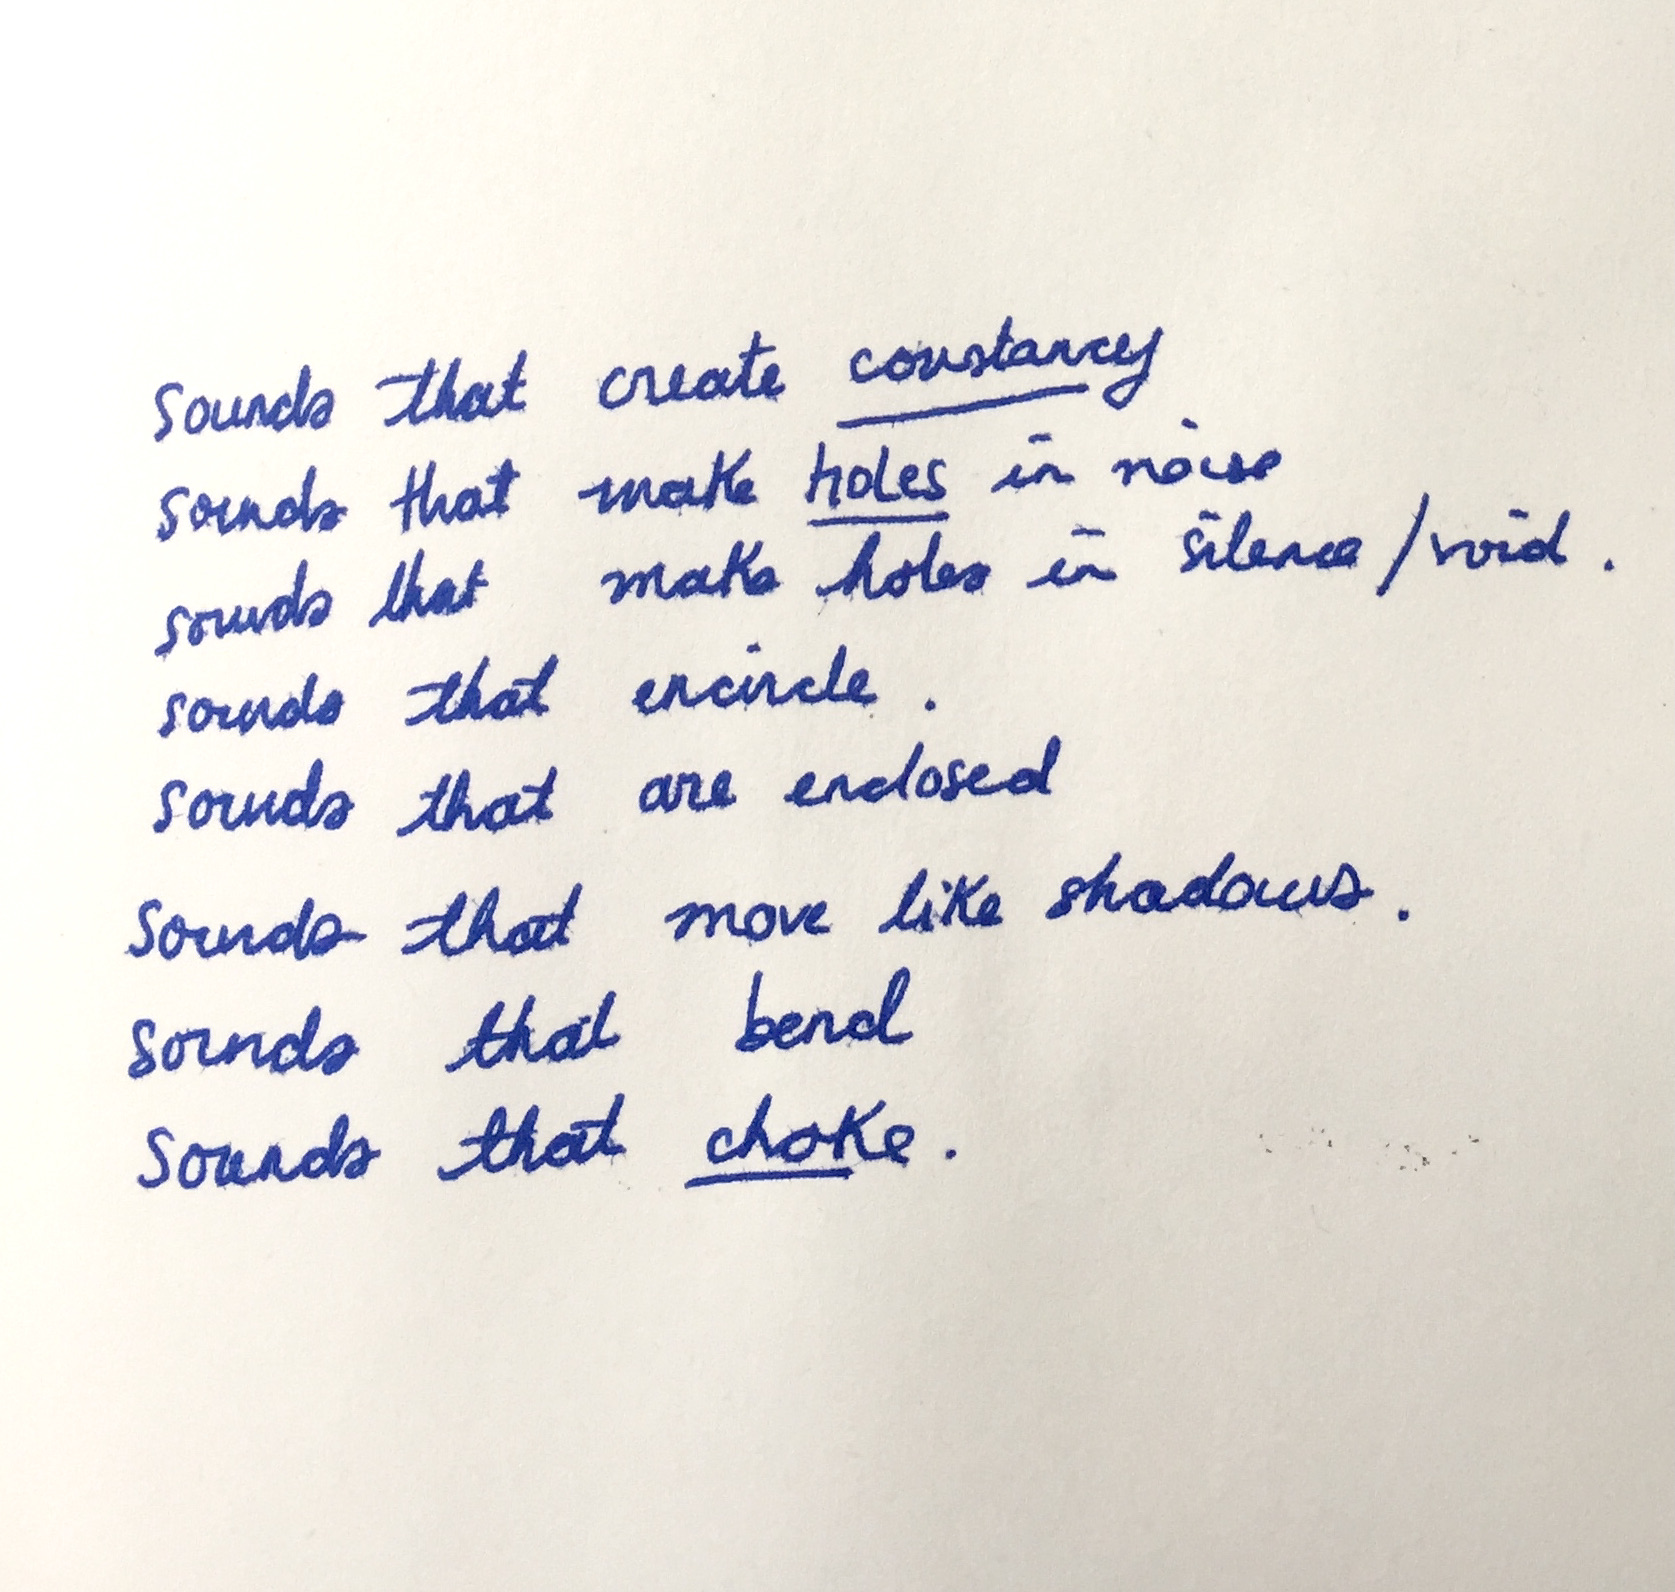 Sounds that create constancy
Sounds that make holes in noise
sounds that make holes in silence/void.
sounds that encircle.
Sounds that are enclosed
Sounds that move like shadows.
Sounds that bend
Sounds that choke.